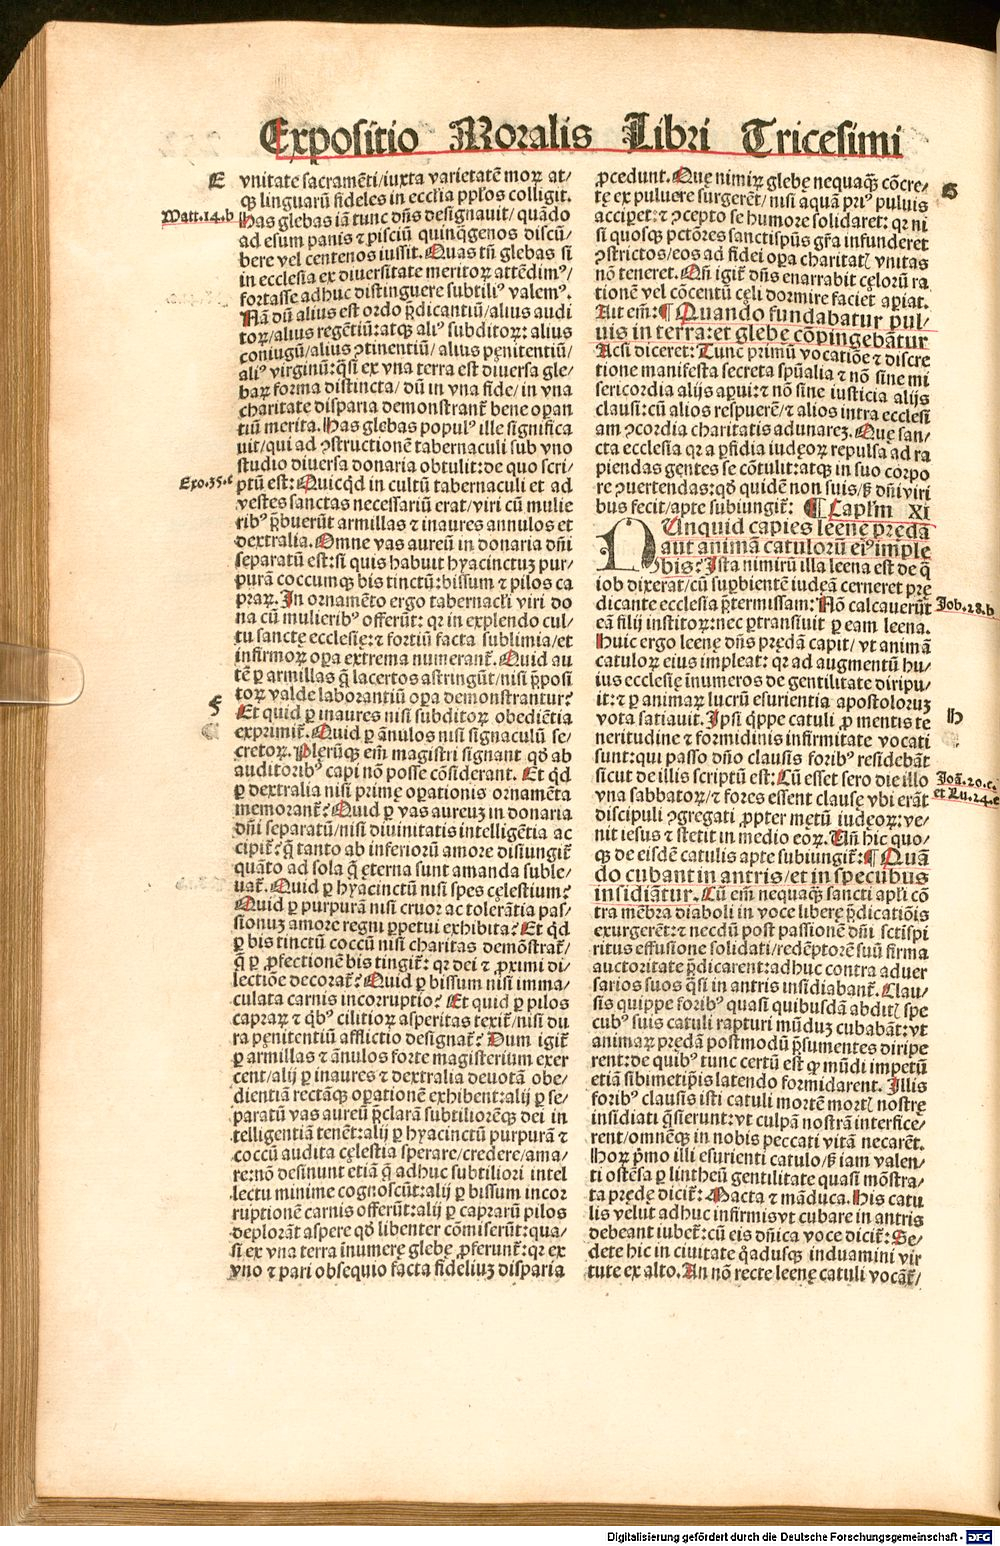 Expositio Moralis Libri Tricesimi
E
vnitate sacramēti/iuxta varietatē moꝝ at⸗
qꝫ linguarū fideles in eccłia ppłos colligit.
Matt.14.b
Has glebas iā tunc dñs designauit/quādo
ad esum panis ⁊ pisciū quinq̃genos discū/
bere vel centenos iussit. Quas tñ glebas si
in ecclesia ex diuersitate meritoꝝ attēdimꝰ/
fortasse adhuc distinguere subtiliꝰ valemꝰ.
Nā dū alius est ordo p̄dicantiū/alius audi
toꝝ/alius regētiū:atqꝫ aliꝰ subditoꝝ: alius
coniugū/alius ꝯtinentiū/ alius pęnitentiū/
aliꝰ virginū:q̄si ex vna terra est diuersa gle⸗
baꝝ forma distincta/ dū in vna fide/ in vna
charitate disparia demonstrant᷑ bene opan
tiū merita. Has glebas populꝰ ille significa
uit/qui ad ꝯstructionē tabernaculi sub vno
studio diuersa donaria obtulit:de quo scri⸗
Exo.35.c
ptū est:Quicq̇d in cultū tabernaculi et ad
vestes sanctas necessariū erat/viri cū mulie
ribꝰ p̄buerūt armillas ⁊ inaures annulos et
dextralia. Omne vas aureū in donaria dñi
separatū est:si quis habuit hyacinctuꝫ pur⸗
purā coccumqꝫ bis tinctū:bissum ⁊ pilos ca
praꝝ. In ornamēto ergo tabernacłi viri do
na cū mulieribꝰ offerūt: qꝛ in explendo cul⸗
tu sanctę ecclesię:⁊ fortiū facta sublimia/et
infirmoꝝ oꝑa extrema numerant᷑. Quid au
tē ꝑ armillas q̄ lacertos astringūt/nisi p̄posi
toꝝ valde laborantiū oꝑa demonstrantur?
F
Et quid ꝑ inaures nisi subditoꝝ obediētia
exprimit᷑. Quid ꝑ ānulos nisi signaculū se⸗
cretoꝝ. Plerūqꝫ em̄ magistri signant qd̄ ab
auditoribꝰ capi nō posse cōsiderant. Et q̇d
ꝑ dextralia nisi primę oꝑationis ornamēta
memorant᷑? Quid ꝑ vas aureuꝫ in donaria
dñi separatū/nisi diuinitatis intelligētia ac
cipit᷑?q̄ tanto ab inferiorū amore disiungit᷑
quāto ad sola q̄ ęterna sunt amanda suble⸗
uat᷑. Quid ꝑ hyacinctū nisi spes cęlestium?
Quid ꝑ purpurā nisi cruor ac tolerātia pas⸗
sionuꝫ amore regni ꝑpetui exhibita? Et q̇d
ꝑ bis tinctū coccū nisi charitas demōstrat᷑/
q̄ ꝑ ꝓfectionē bis tingit᷑: qꝛ dei ⁊ ꝓximi di⸗
lectiōe decorat᷑? Quid ꝑ bissum nisi imma⸗
culata carnis incorruptio? Et quid ꝑ pilos
capraꝝ ⁊ q̇bꝰ cilitioꝝ asperitas texit᷑/nisi du
ra pęnitentiū afflictio designat᷑? Dum igit᷑
ꝑ armillas ⁊ ānulos forte magisterium exer
cent/alij ꝑ inaures ⁊ dextralia deuotā obe⸗
dientiā rectāqꝫ oꝑationē exhibent:alij ꝑ se⸗
paratū vas aureū p̄clarā subtiliorēqꝫ dei in
telligentiā tenēt:alij ꝑ hyacinctū purpurā ⁊
coccū audita cęlestia sperare/credere/ama⸗
re:nō desinunt etiā q̄ adhuc subtiliori intel
lectu minime cognoscūt:alij ꝑ bissum incor
ruptionē carnis offerūt:alij ꝑ caprarū pilos
deplorāt aspere qd̄ libenter cōmiserūt:qua⸗
si ex vna terra īnumerę glebę ꝓferunt᷑:qꝛ ex
vno ⁊ pari obsequio facta fideliuꝫ disparia
ꝓcedunt. Quę nimiꝝ glebę nequaq̄ꝫ cōcre⸗
G
tę ex puluere surgerēt/ nisi aquā priꝰ puluis
acciꝑet:⁊ ꝯcepto se humore solidaret: qꝛ ni
si quosqꝫ pctōres sanctispūs gr̄a infunderet
ꝯstrictos/eos ad fidei oꝑa charitatꝭ vnitas
nō teneret. Qñ igit᷑ dñs enarrabit cęlorū ra
tionē vel cōcentū cęli dormire faciet aꝑiat.
Ait em̄: ¶ Quando fundabatur pul⸗
uis in terra:et glebę cōpingebātur
Acsi diceret: Tunc primū vocatiōe ⁊ discre
tione manifesta secreta spūalia ⁊ nō sine mi
sericordia alijs aꝑui:⁊ nō sine iusticia alijs
clausi:cū alios respuerē/⁊ alios intra ecclesi
am ꝯcordia charitatis adunareꝫ. Quę san⸗
cta ecclesia qꝛ a ꝑfidia iudęoꝝ repulsa ad ra
piendas gentes se cōtulit:atqꝫ in suo corpo
re ꝯuertendas:qd̄ quidē non suis/ꝫ dñi viri
bus fecit/apte subiungit᷑: ¶ Capłm XI
NUnquid capies leenę prędā
aut animā catulorū eiꝰ imple
bis? Ista nimirū illa leena est de q̄
iob dixerat/cū suꝑbientē iudeā cerneret prę
Job.28.b
dicante ecclesia p̄termissam: Nō calcauerūt
eā filij institoꝝ:nec ꝑtransiuit ꝑ eam leena.
Huic ergo leenę dñs prędā capit/ vt animā
catuloꝝ eius impleat: qꝛ ad augmentū hu⸗
ius ecclesię īnumeros de gentilitate diripu⸗
it:⁊ ꝑ animaꝝ lucrū esurientia apostoloruꝫ
H
vota satiauit. Ipsi q̇ppe catuli ꝓ mentis te
neritudine ⁊ formidinis infirmitate vocati
sunt:qui passo dño clausis foribꝰ residebāt
Joā.20.c.
sicut de illis scriptū est: Cū esset sero die illo
et Lu.24.e
vna sabbatoꝝ/⁊ fores essent clausę vbi erāt
discipuli ꝯgregati ꝓpter metū iudęoꝝ:ve⸗
nit iesus ⁊ stetit in medio eoꝝ. Un̄ hic quo⸗
qꝫ de eisdē catulis apte subiungit᷑: ¶ Quā
do cubant in antris/et in specubus
insidiātur. Cū em̄ nequaq̄ꝫ sancti apłi cō
tra mēbra diaboli in voce liberę p̄dicatiōis
exurgerēt:⁊ necdū post passionē dñi sctispi
ritus effusione solidati/redēptorē suū firma
auctoritate p̄dicarent:adhuc contra aduer
sarios suos q̄si in antris insidiabant᷑. Clau⸗
sis quippe foribꝰ quasi quibusdā abditꝭ spe
cubꝰ suis catuli rapturi mūduꝫ cubabāt:vt
animaꝝ prędā postmodū p̄sumentes diripe
rent:de quibꝰ tunc certū est ꝙ mūdi impetū
etiā sibimetip̄is latendo formidarent. Illis
foribꝰ clausis isti catuli mortē mortꝭ nostrę
insidiati q̄sierunt:vt culpā nostrā interfice⸗
rent/omnēqꝫ in nobis peccati vitā necarēt.
Hoꝝ p̄mo illi esurienti catulo/ꝫ iam valen⸗
ti ostēsa ꝑ lintheū gentilitate quasi mōstra⸗
ta prędę dicit᷑: Macta ⁊ māduca. His catu
lis velut adhuc infirmis vt cubare in antris
debeant iubet᷑:cū eis dñica voce dicit᷑: Se⸗
dete hic in ciuitate q̄adusqꝫ induamini vir
tute ex alto. An nō recte leenę catuli vocāt᷑/
Digitalisierung gefördert durch die Deutsche Forschungsgemeinschaft - DFG